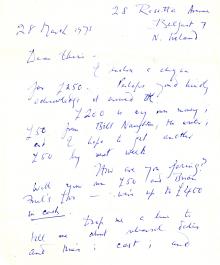 28 Rosetta Avenue
Belfast 7
N. Ireland
28 March 1973
Dear Chris -
I enclose a cheque
for £250. Perhaps you kindly
acknowledge it around the
£200 is my own money,
£50 from Bill Naughton, the writer,
and I hope to get another
£50 by next week
How are you faring?
Will you use £50 and Brian
Friel's this — win up to £400
in cash.
Drop me a line to
tell me about rehearsal dates
and times; cast; and